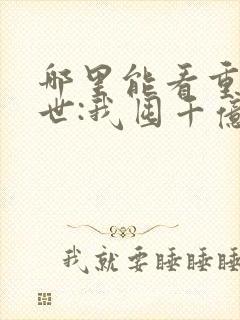 哪里能看重
世:我囤千億
我就要睡睡睡